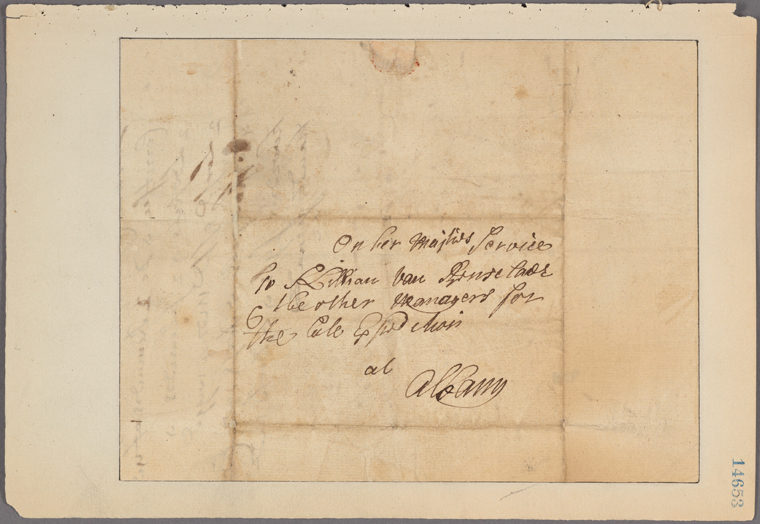 On her Majties Service
To Killian Van Renselaer
& the other Managers for
the late Expedition
at
Albany
14653